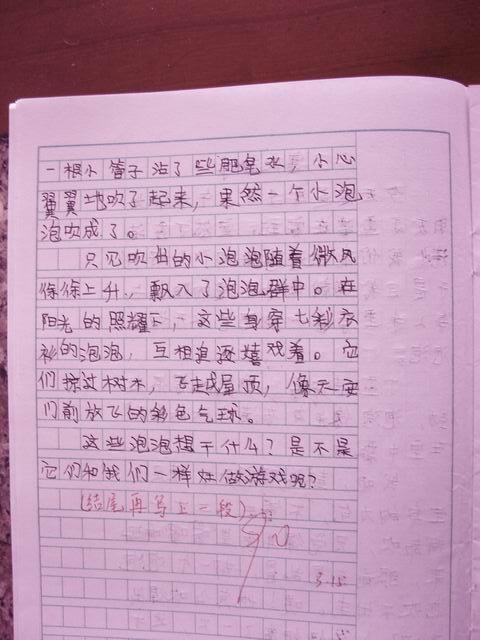 一根小管子沾了些肥皂水，小心
翼翼地吹了起来，果然一个小泡
泡吹成了。
只见吹出的小泡泡随着微风
徐徐上升，飘入了泡泡群中。在
阳光的照耀下，这些身穿七彩衣
衫的泡泡，互相追逐嬉戏着。它
们掠过树木，飞越屋顶，像天安
门前放飞的彩色气球。
这些泡泡想干什么？是不是
它们和我们一样在做游戏呢？
（结尾再写上一段）
3.15